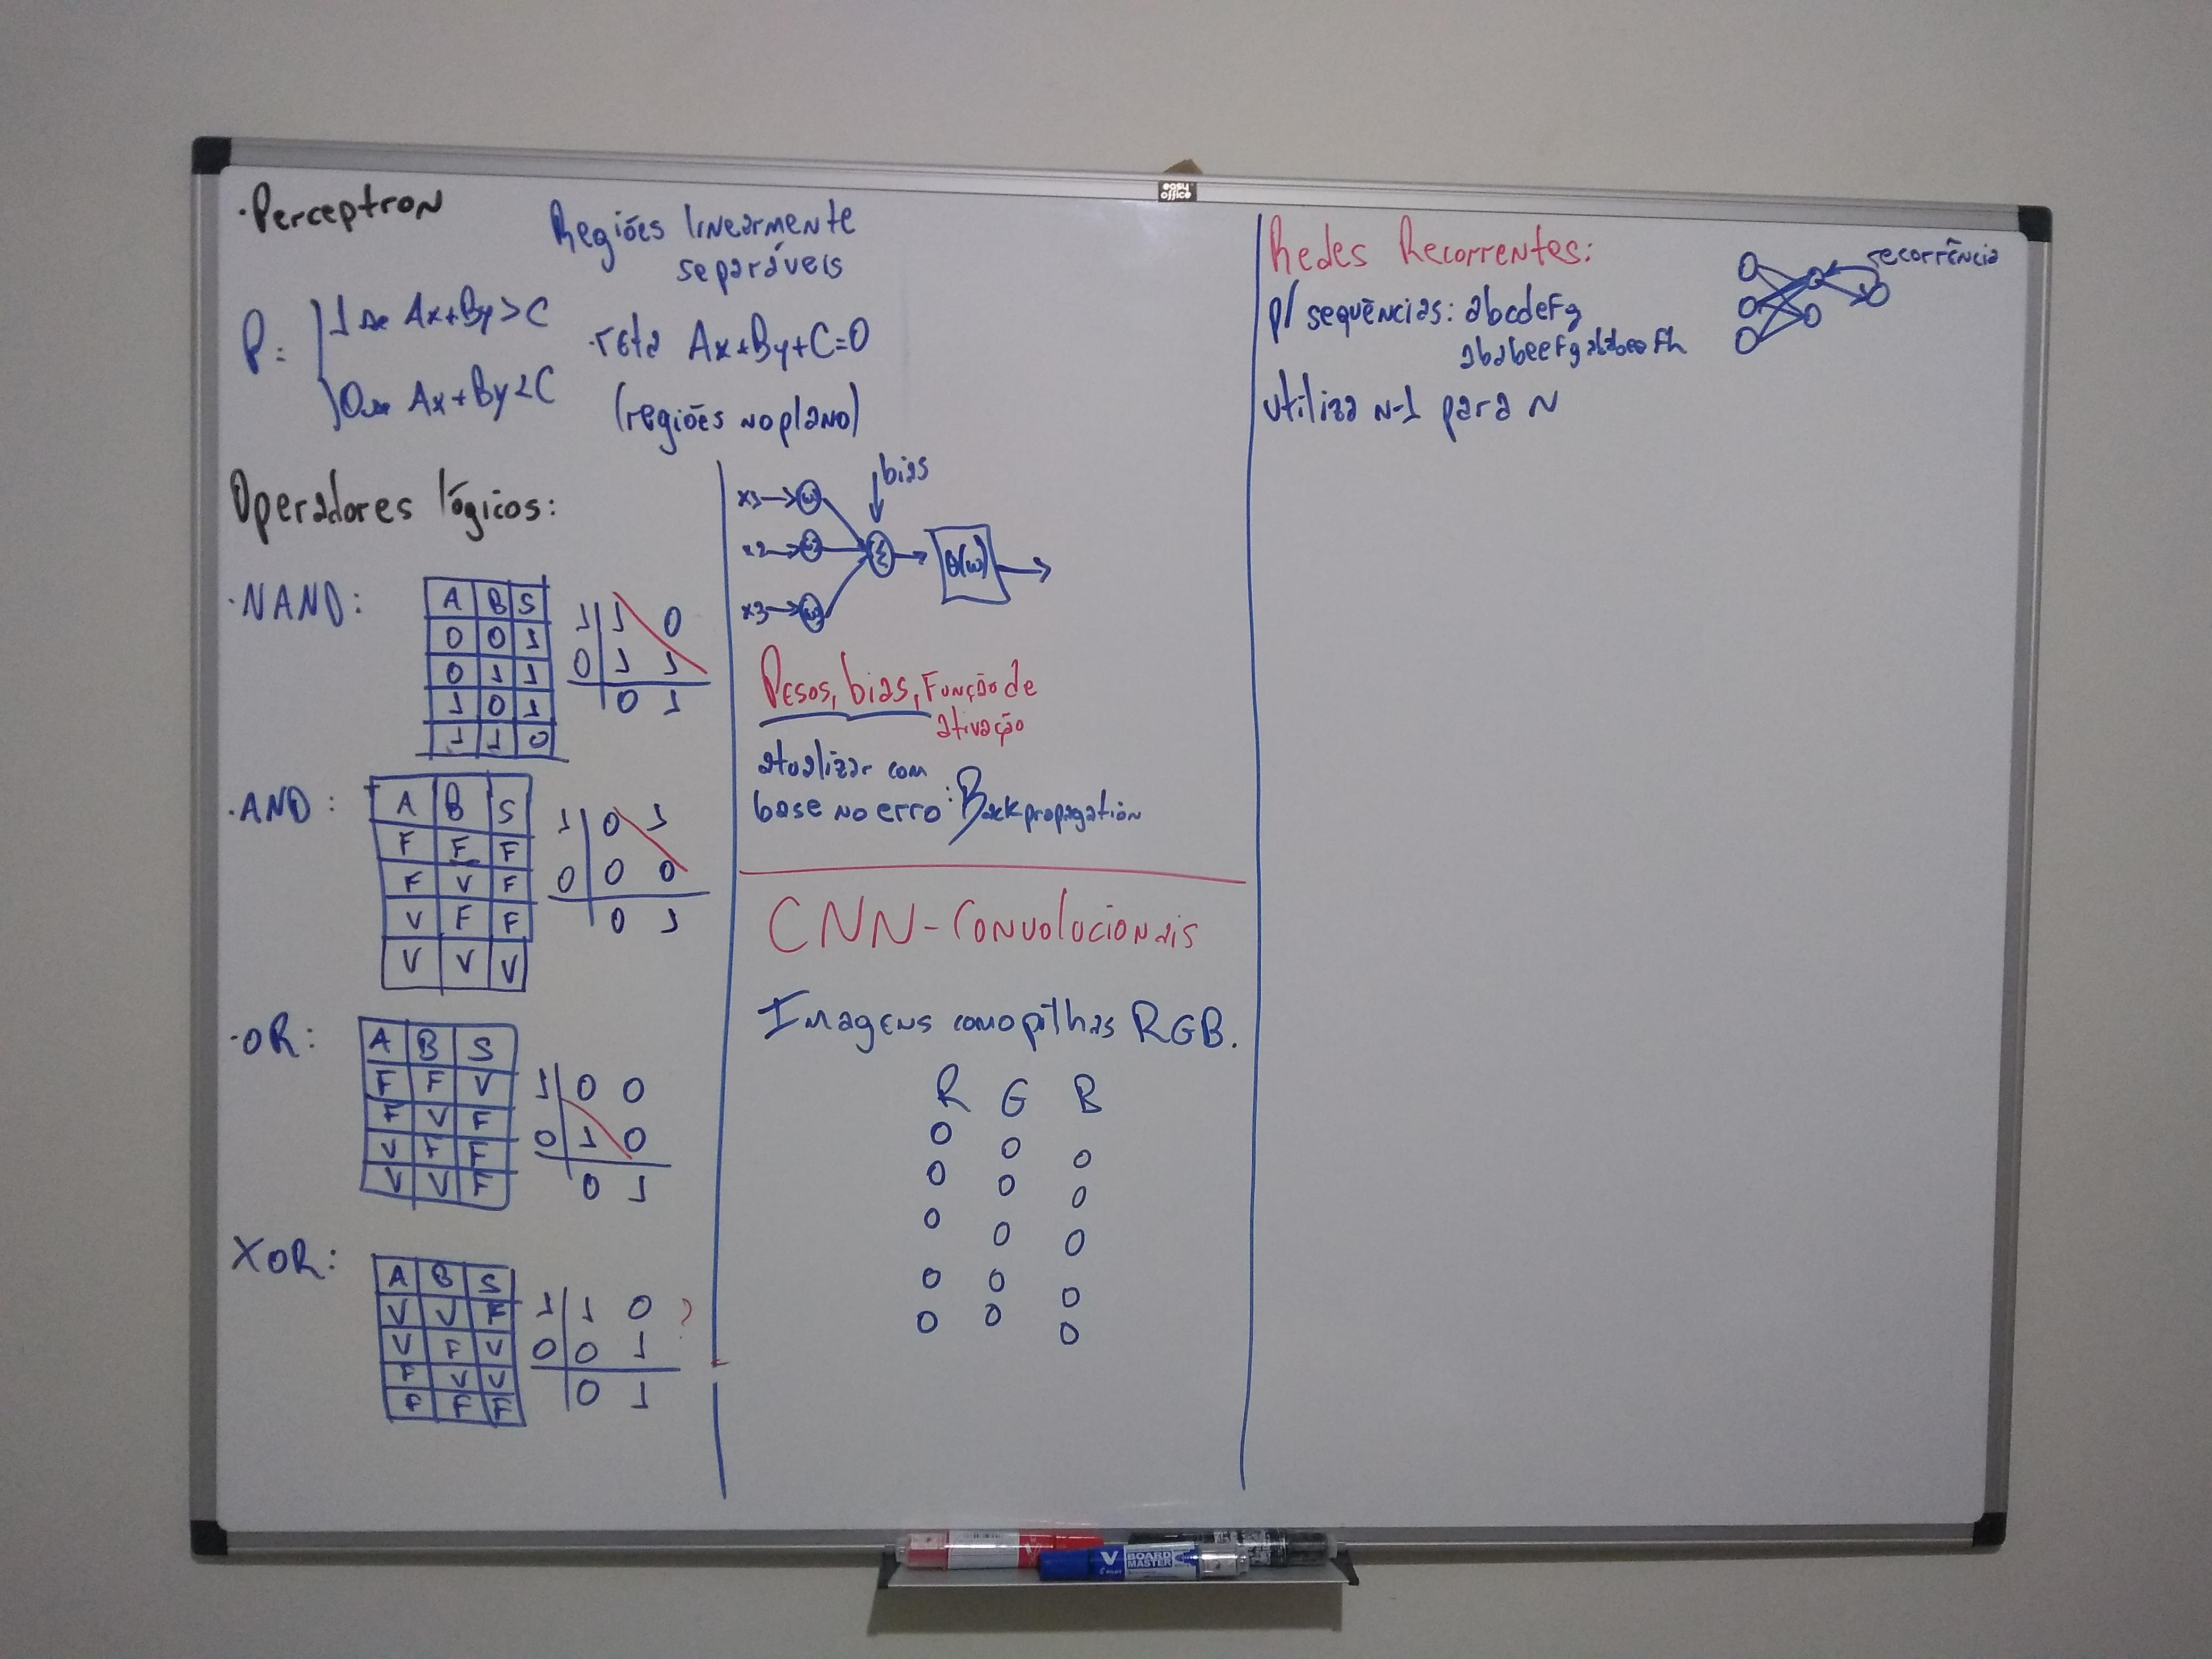 ·Perceptron
Regiões linearmente
separáveis
P = 1 se Ax+By>C
0 se Ax+By<C
·reta Ax+By+C=0
(regiões no plano)
Operadores lógicos:
·NAND:
A B S
0 0 1
0 1 1
1 0 1
1 1 0
1 1 0
0 1 1
0 1
·AND:
A B S
F F F
F V F
V F F
V V V
1 0 1
0 0 0
0 1
·OR:
A B S
F F V
F V F
V F F
V V F
1 0 0
0 1 0
0 1
XOR:
A B S
V V F
V F V
F V V
F F F
1 1 0 ?
0 0 1
0 1
bias
x1
x2
x3
Σ
Pesos, bias, Função de
ativação
atualizar com
base no erro: Backpropagation
CNN-Convolucionais
Imagens como pilhas RGB.
R G B
0 0 0
0 0 0
0 0 0
0 0 0
0 0 0
Redes Recorrentes:
p/ sequências: abcdefg
utiliza N-1 para N
recorrência
easy
office
V BOARD
MASTER
PILOT